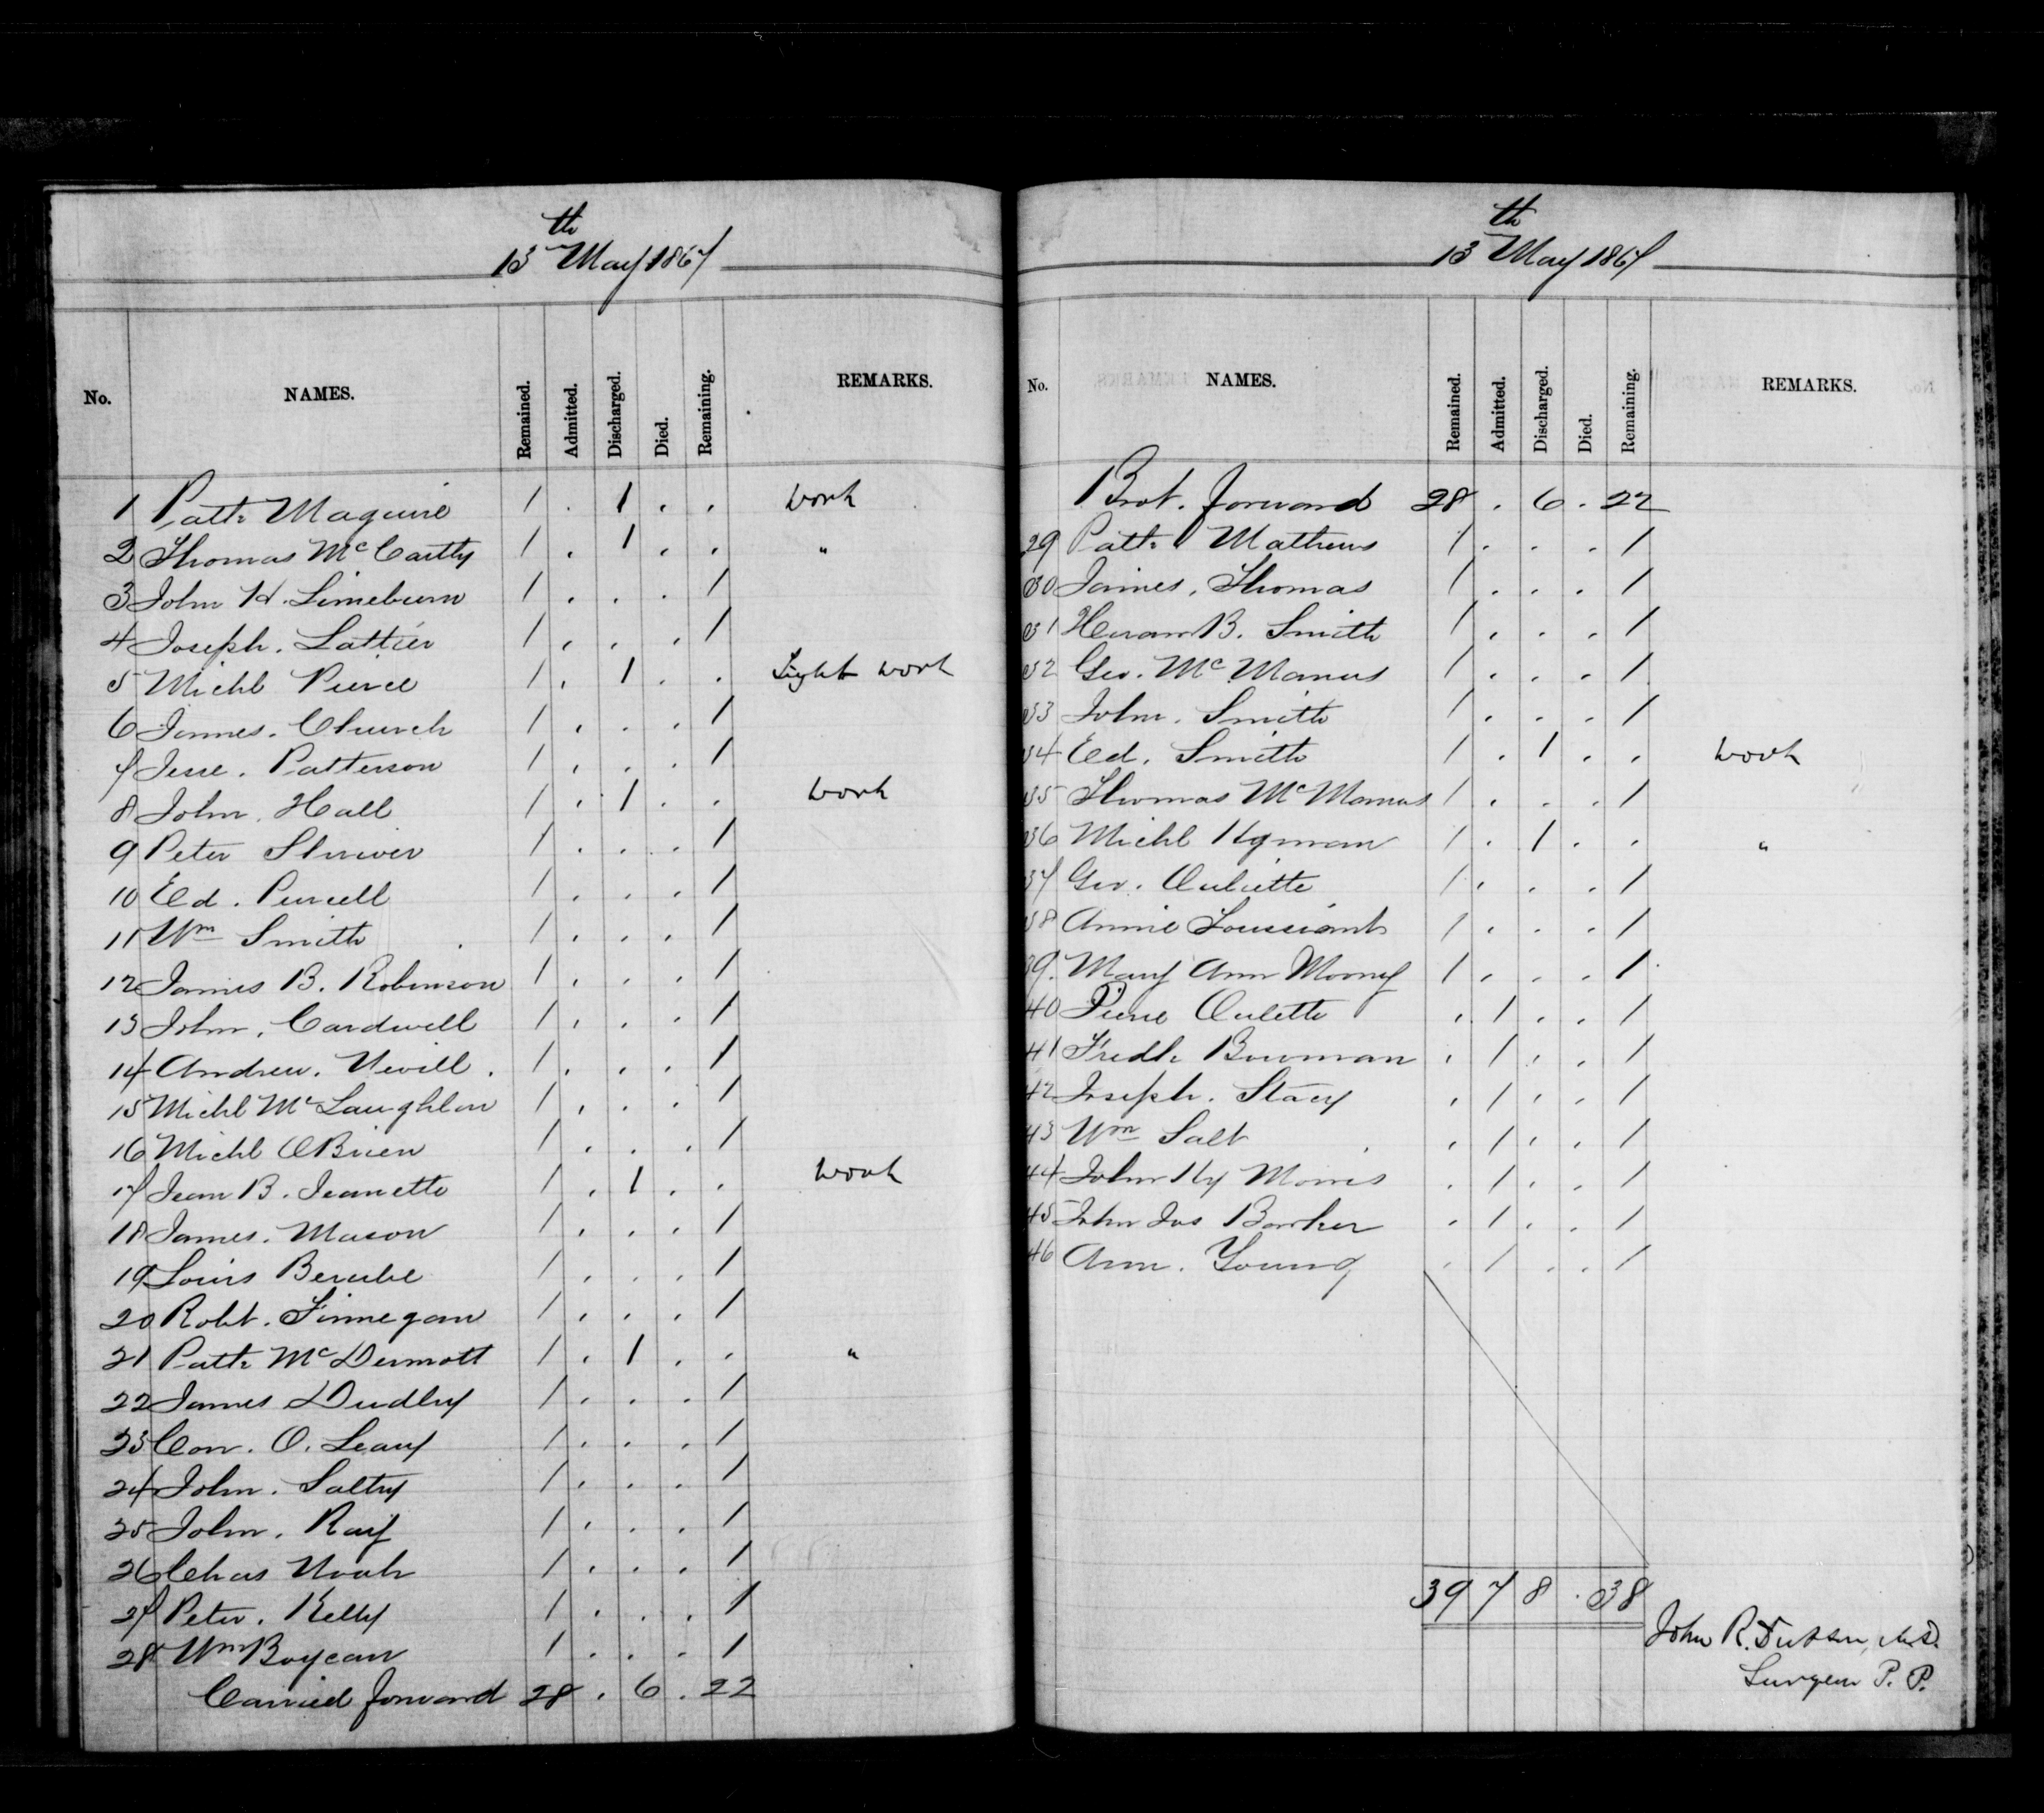 13th May 1867
No. NAMES. Remained. Admitted. Discharged. Died. Remaining. REMARKS.
1 Patk Maguire 1 . 1 . . work
2 Thomas McCarthy 1 . 1 . . "
3 John H. Limeburn 1 . . . 1
4 Joseph. Lattier 1 . . . 1
5 Michl Pierce 1 . 1 . . Light work
6 James. Church 1 . . . 1
7 Jesse. Patterson 1 . . . 1
8 John. Hall 1 . 1 . . work
9 Peter Shriver 1 . . . 1
10 Ed. Purcell 1 . . . 1
11 Wm Smith 1 . . . 1
12 James B. Robinson 1 . . . 1
13 John. Cardwell 1 . . . 1
14 Andrew. Nevill. 1 . . . 1
15 Michl McLaughlan 1 . . . 1
16 Michl OBrien 1 . . . 1
17 Jean B. Jeanette 1 . 1 . . work
18 James. Mason 1 . . . 1
19 Louis Berube 1 . . . 1
20 Robt. Finnegan 1 . . . 1
21 Patk McDermott 1 . 1 . . "
22 James Dudley 1 . . . 1
23 Con. O. Leary 1 . . . 1
24 John. Saltry 1 . . . 1
25 John. Ray 1 . . . 1
26 Chas Noah 1 . . . 1
27 Peter. Kelly 1 . . . 1
28 Wm Boycan 1 . . . 1
Carried forward 28 . 6 . 22
13th May 1867
No. NAMES. Remained. Admitted. Discharged. Died. Remaining. REMARKS.
Brot. forward 28 . 6 . 22
29 Patk Mathews 1 . . . 1
30 James. Thomas 1 . . . 1
31 Hiram B. Smith 1 . . . 1
32 Geo. McManus 1 . . . 1
33 John. Smith 1 . . . 1
34 Ed. Smith 1 . 1 . . work
35 Thomas McManus 1 . . . 1
36 Michl Hyman 1 . 1 . . "
37 Geo. Ouliette 1 . . . 1
38 Annie Toussiant 1 . . . 1
39. Mary Ann Mooney 1 . . . 1
40 Pierre Oulette . 1 . . 1
41 Fredk Bowman . 1 . . 1
42 Joseph. Stacy . 1 . . 1
43 Wm Salt . 1 . . 1
44 John Hy Morris . 1 . . 1
45 John Jas Barker . 1 . . 1
46 Ann. Young . 1 . . 1
39 7 8 . 38
John R. M.D.
Surgeon P. P.